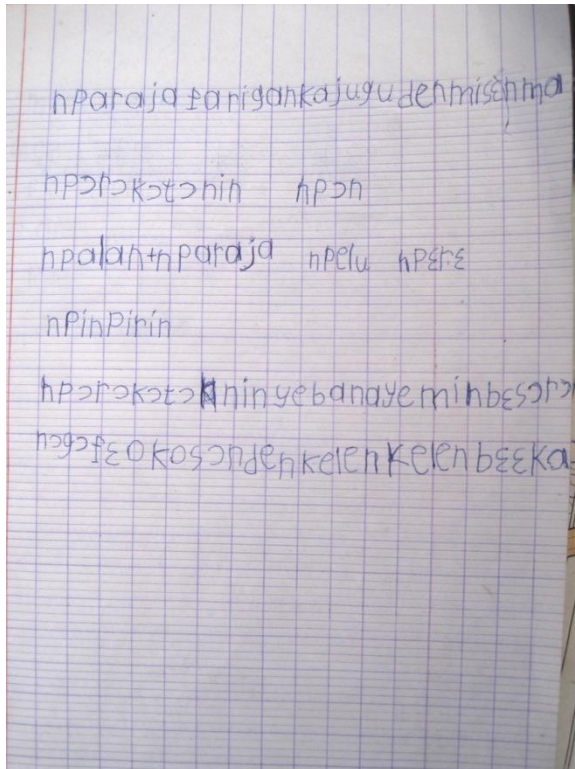 nparaja farigankajugu denmisɛnma
npɔrɔkɔtɔnin npɔn
npalan+nparaja npelu npɛrɛ
npinpirin
npɔrɔkɔtɔnin yebanayeminbɛsɔrɔ
okosɔn denkelenkelenbɛɛka-